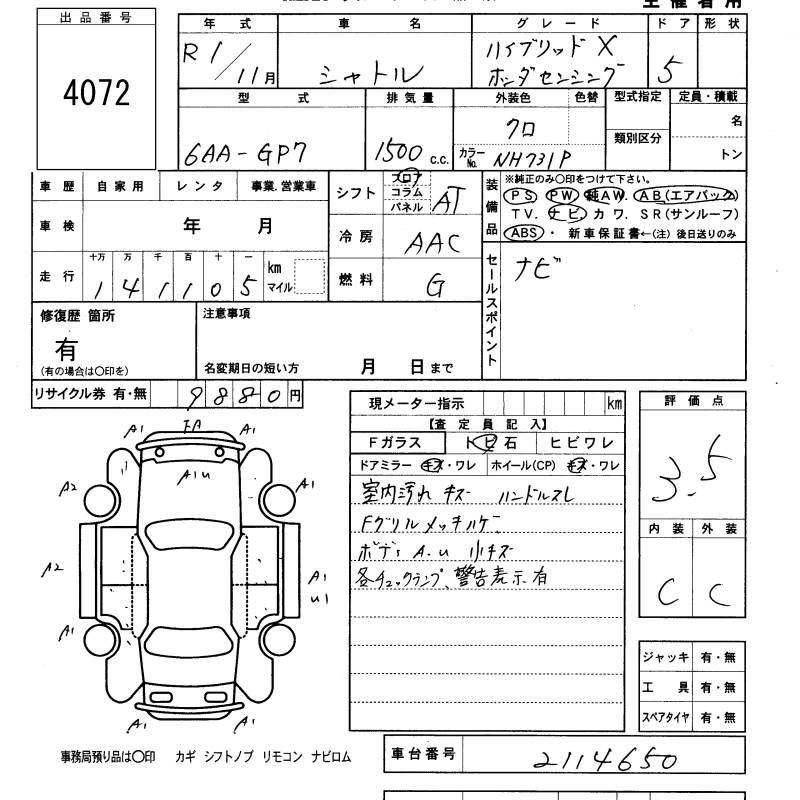 主催者用
出品番号
4072
年式 車名 グレード ドア 形状
R1/11月 シャトル ハイブリッド X ホンダセンシング 5
型式 排気量 外装色 色替 型式指定 定員・積載
6AA-GP7 1500c.c. クロ 類別区分 名
カラーNo. NH731P トン
車歴 自家用 レンタ 事業.営業車
車検 年 月
走行 十万 万 千 百 十 一 km マイル
1 4 1 1 0 5
シフト フロア コラム パネル AT
冷房 AAC
燃料 G
装備品 ※純正のみ〇印をつけて下さい。
PS PW 純AW. AB(エアバック)
TV. ナビ. カワ. SR(サンルーフ)
ABS・ 新車保証書←(注) 後日送りのみ
セールスポイント ナビ
修復歴 箇所
有
(有の場合は〇印を)
注意事項
名変期日の短い方 月 日まで
リサイクル券 有・無 9880円
現メーター指示 km
【査定員記入】
Fガラス トビ石 ヒビワレ
ドアミラー キズ・ワレ ホイール(CP) キズ・ワレ
室内汚れ キズ ハンドルスレ
Fグリルメッキハゲ
ボディ A.U 小キズ
各チェックランプ、警告表示有
評価点
3.5
内装 外装
C C
A1 FA A1
A1U
A2 A1
A2 A1
U1
A1 A1
A1 A1
ジャッキ 有・無
工具 有・無
スペアタイヤ 有・無
事務局預り品は〇印 カギ シフトノブ リモコン ナビロム
車台番号 2114650